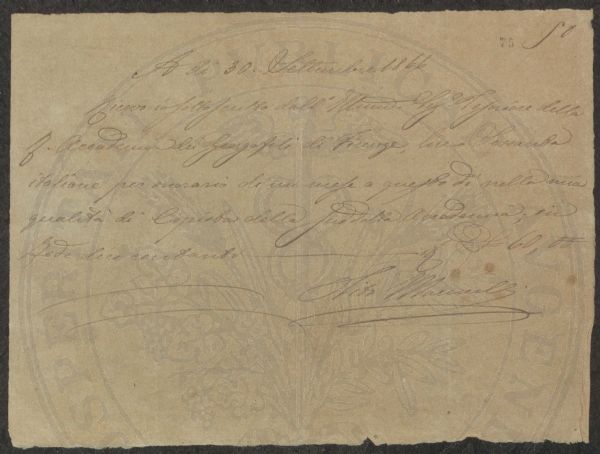 75 50
A dì 30. Settembre 1866
Ricevo io sottoscritto dall' Illmo. Sig. Cassiere della
R. Accademia dei Georgofili di Firenze, Lire Sessanta
italiane per onorario di un mese a questo dì nella mia
qualità di Copista della suddetta Accademia; in
fede dico contanti £ 60,00